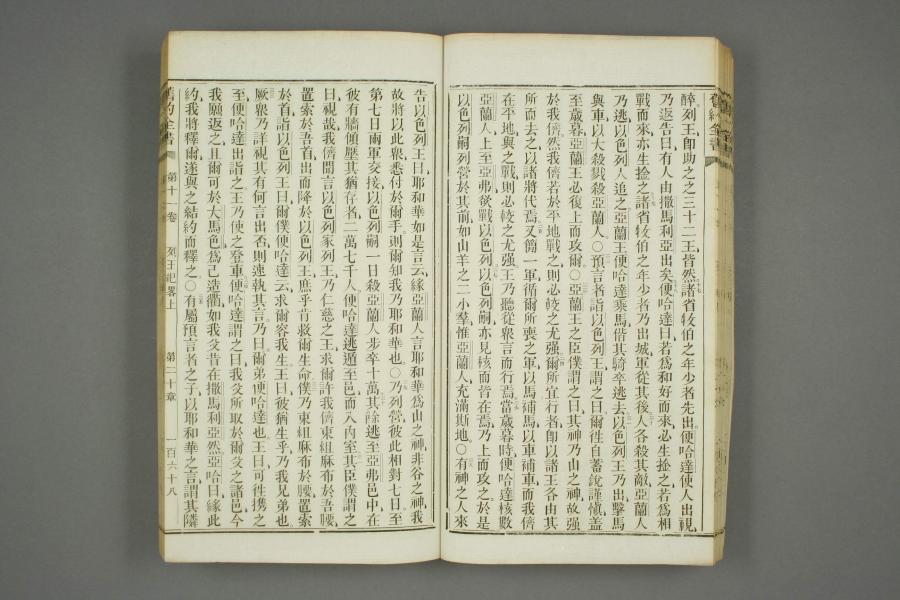 舊約全書
醉列王卽助之之三十二王皆然諸省牧伯之年少者先出便哈達使人出視
乃返告曰有人由撒馬利亞出矣便哈達曰若爲和好而來必生捡之若爲相
戰而來亦生捡之諸省牧伯之年少者乃出城軍從其後人各殺其敵亞蘭人
乃逃以色列人追之亞蘭王便哈達乘馬偕其騎卒逃去以色列王乃出擊馬
與車以大殺戮殺亞蘭人〇預言者詣以色列王謂之曰爾徃自蓄銳謹愼蓋
至歲暮亞蘭王必復上而攻爾〇亞蘭王之臣僕謂之曰其神乃山之神故强
於我儕然我儕若於平地戰之則必較之尤强爾所宜行者卽以諸王各由其
所而去之以諸將代焉又簡一軍循爾所喪之軍以馬補馬以車補車而我儕
在平地與之戰則必較之尤强王乃聽從衆言而行焉當歲暮時便哈達核數
亞蘭人上至亞弗欲戰以色列以色列嗣亦見核而皆在焉乃上而攻之於是
以色列嗣列營於其前如山羊之二小羣惟亞蘭人充滿斯地〇有神之人來
告以色列王曰耶和華如是言云緣亞蘭人言耶和華爲山之神非谷之神我
故將以此衆悉付於爾手則爾知我乃耶和華也〇乃列營彼此相對七日至
第七日兩軍交接以色列嗣一日殺亞蘭人步卒十萬其餘逃至亞弗邑中在
彼有牆傾壓其猶存者二萬七千人便哈達逃遁至邑而入内室其臣僕謂之
曰視哉我儕聞言以色列家列王乃仁慈之王求爾許我儕束組麻布於吾腰
置索於吾首出而降於以色列王庶乎肯救爾生命僕乃束組麻布於腰置索
於首詣以色列王曰爾僕便哈達云求爾容我生王曰彼猶生乎乃我兄弟也
厥衆乃詳視其有何言出否則速執其言乃曰爾弟便哈達也王曰可徃携之
至便哈達出詣之王乃使之登車便哈達謂之曰我父所取於爾父之諸邑今
我願返之且爾可於大馬色爲己造衢如我父昔在撒馬利亞然亞哈曰緣此
約我將釋爾遂與之結約而釋之〇有屬預言者之子以耶和華之言謂其隣
舊約全書 第十一卷 列王紀畧上 第二十章 一百六十八